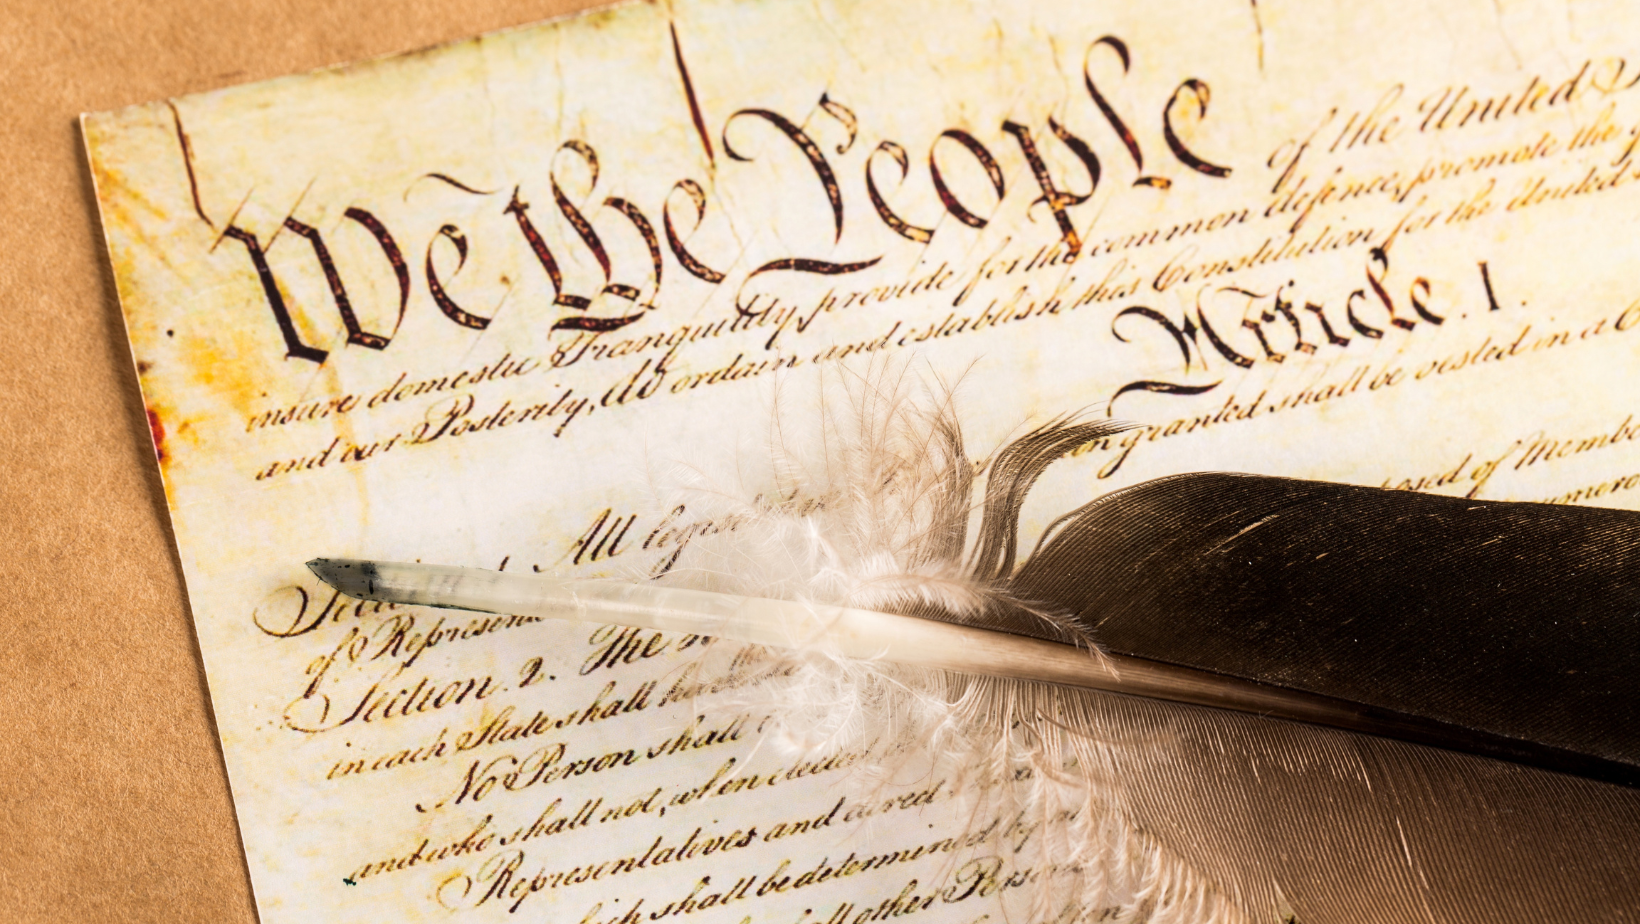 We the People of the United
insure domestic Tranquility, provide for the common defence, promote the
and our Posterity, do ordain and establish this Constitution for the United
Article. I.
All
granted shall be vested in a
of
Section. 2. The
of Members
in each State shall
No Person shall
and who shall not, when elected
Representatives and direct
shall be determined by
other Persons